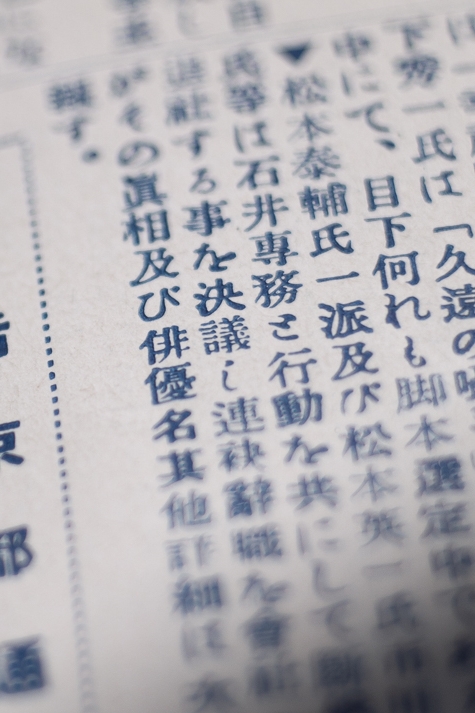 下秀一氏は「久遠の
中にて、目下何れも脚本選定中
▼松本泰輔氏一派及び松本英一氏
氏等は石井専務と行動を共にして断
退社する事を決議し連袂辭職を會社
がその眞相及び俳優名其他詳細は次
報す。
京
都
通